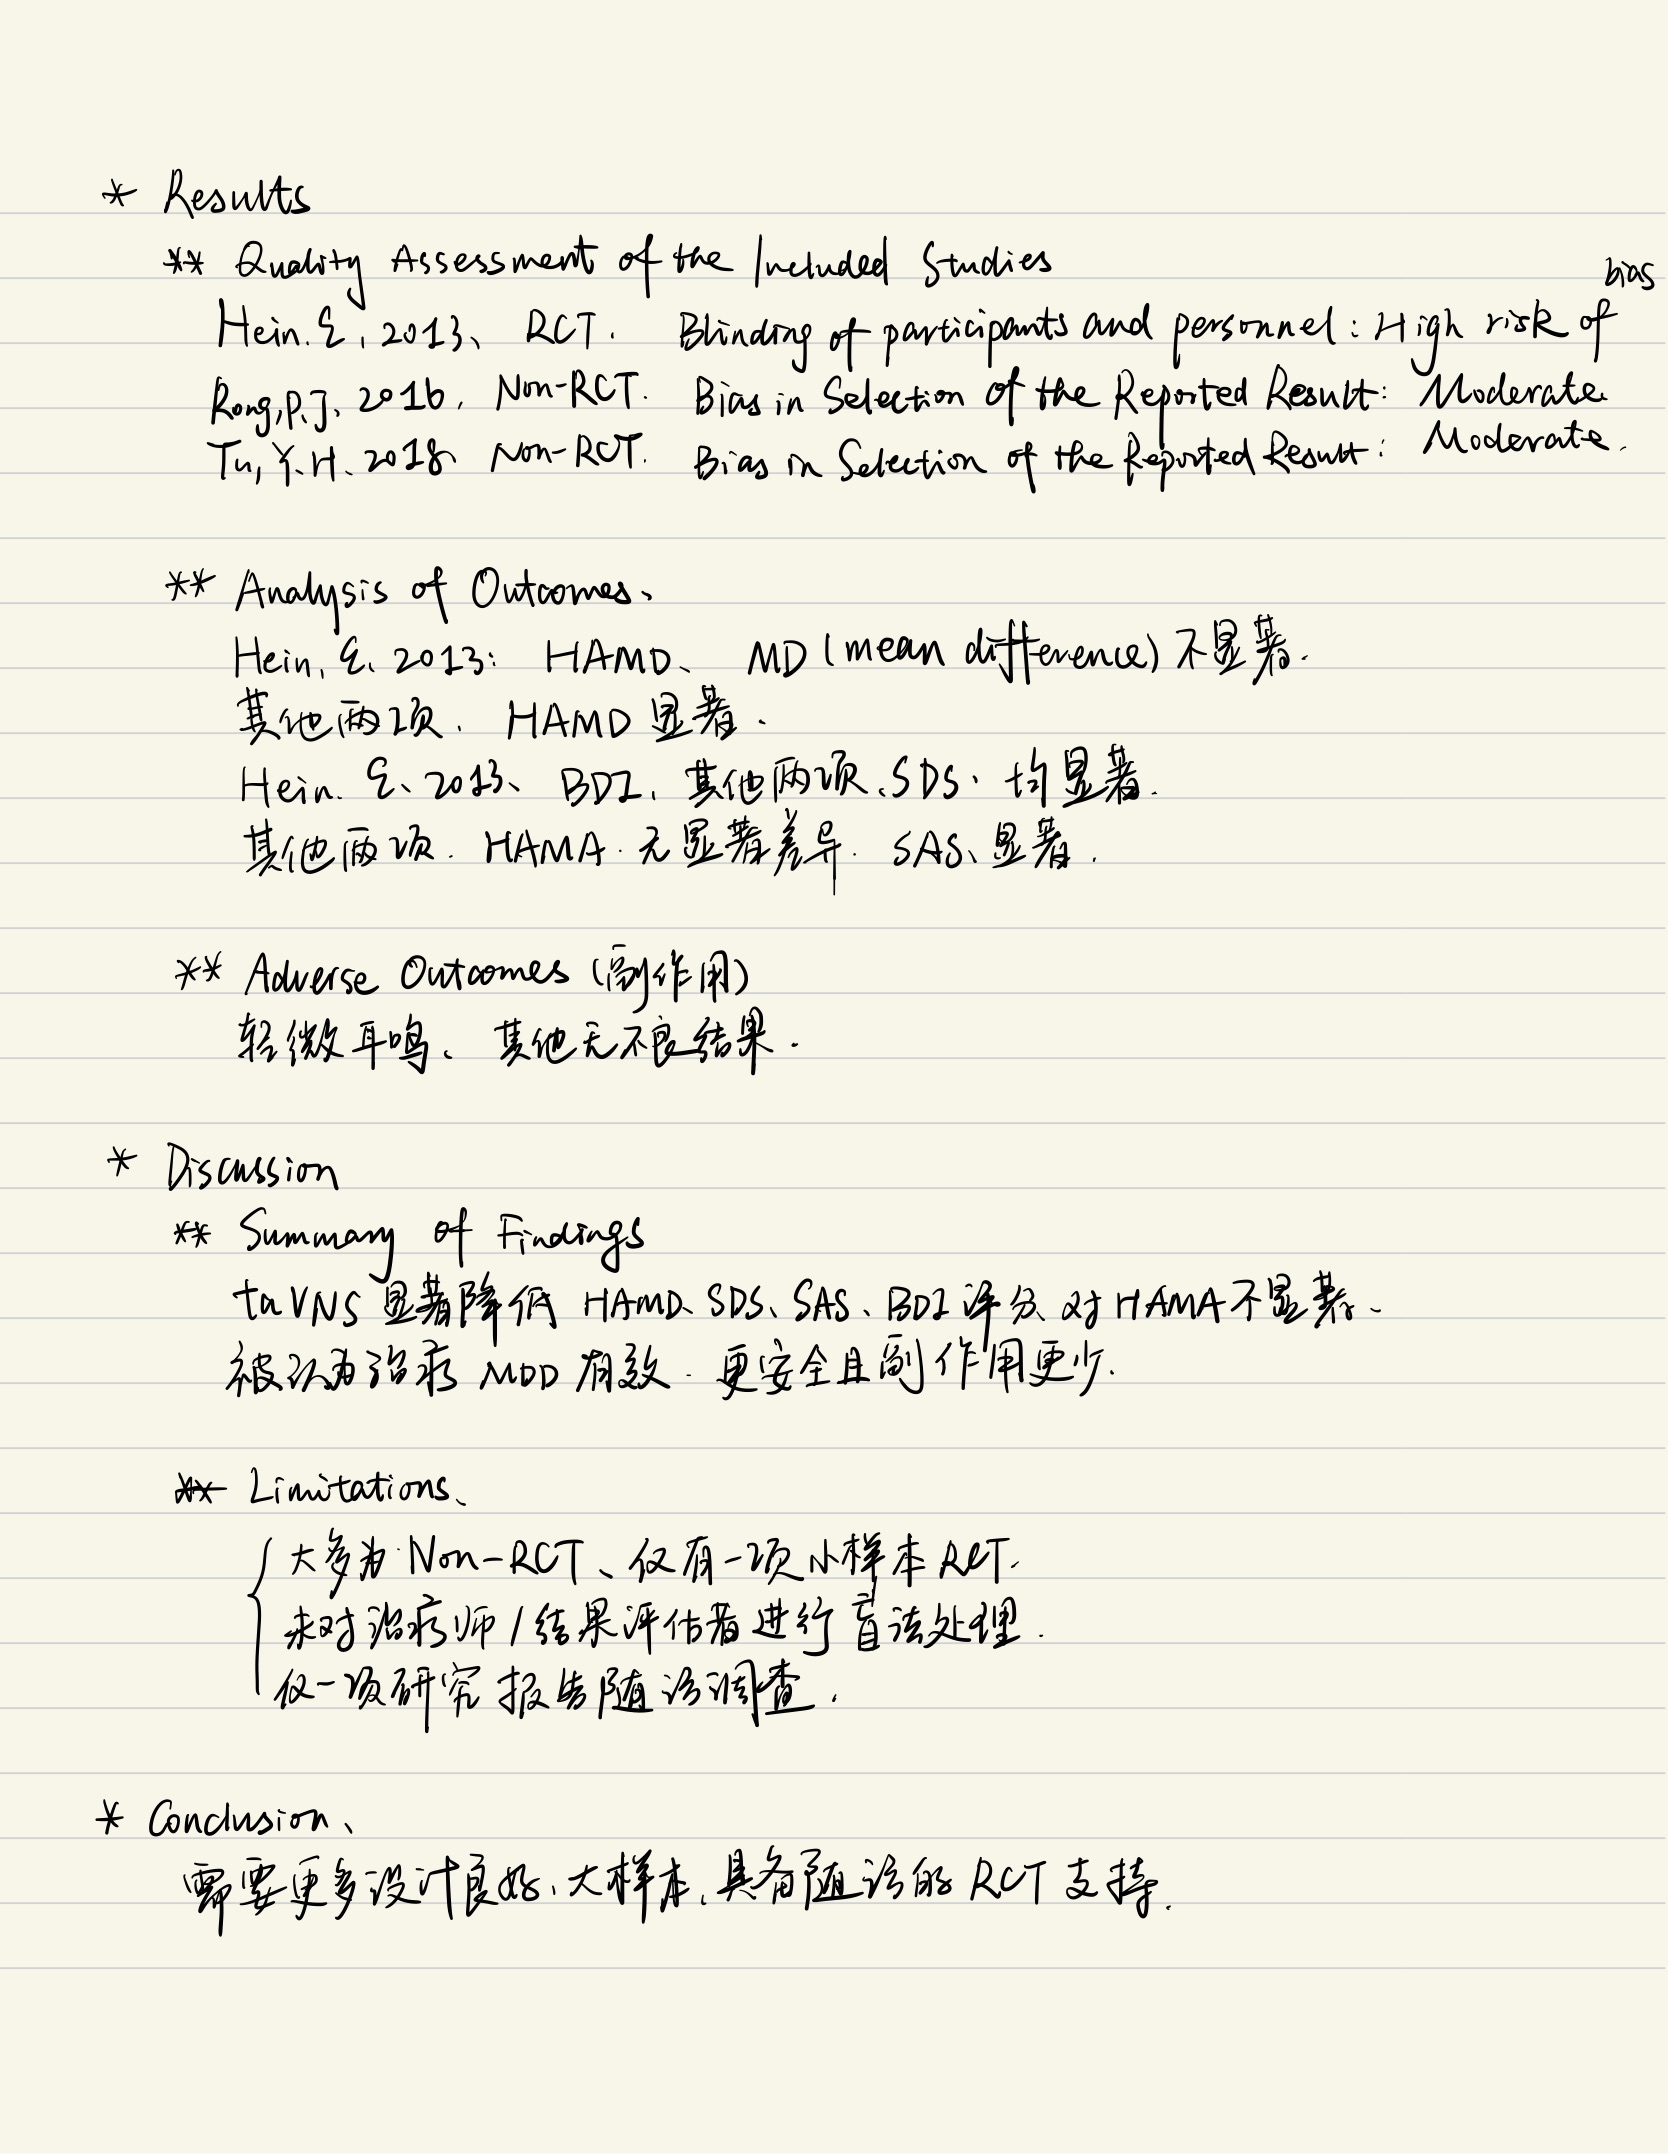 * Results
** Quality Assessment of the Included Studies
Hein. E, 2013、 RCT. Blinding of participants and personnel: High risk of bias
Rong, P.J, 2016, Non-RCT. Bias in Selection of the Reported Result: Moderate.
Tu, Y.H. 2018、 Non-RCT. Bias in Selection of the Reported Result: Moderate.
** Analysis of Outcomes、
Hein, E. 2013: HAMD、 MD (mean difference) 不显著.
其他两项. HAMD 显著.
Hein. E、2013、 BDI, 其他两项、SDS、均显著.
其他两项. HAMA. 无显著差异. SAS、显著.
** Adverse Outcomes (副作用)
轻微耳鸣、其他无不良结果.
* Discussion
** Summary of Findings
taVNS 显著降低 HAMD、SDS、SAS、BDI 评分、对 HAMA 不显著、
被认为治疗 MDD 有效. 更安全且副作用更少.
** Limitations、
大多为 Non-RCT、仅有一项小样本 RCT.
未对治疗师/结果评估者进行盲法处理.
仅一项研究报告随访调查.
* Conclusion、
需要更多设计良好、大样本、具备随访的 RCT 支持.